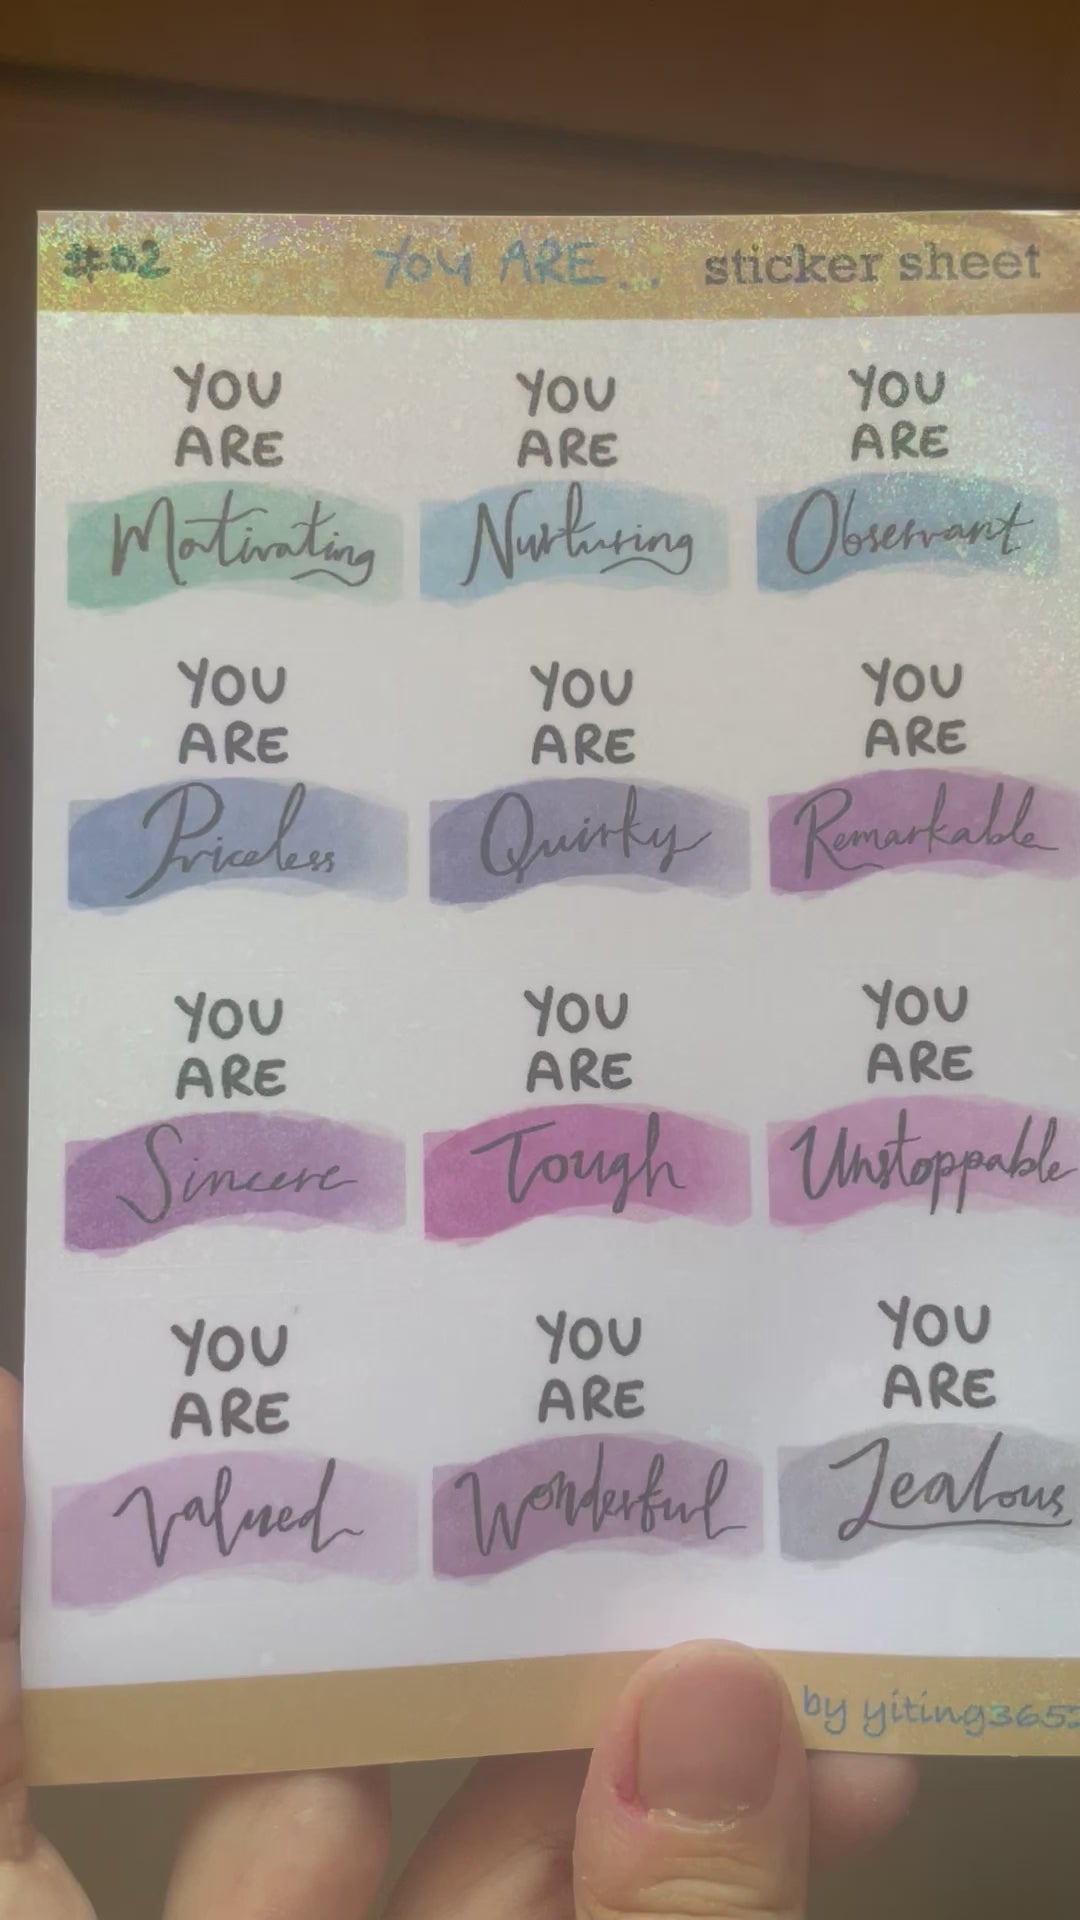 #02 YOU ARE... sticker sheet
YOU
ARE
Motivating
YOU
ARE
Nurturing
YOU
ARE
Observant
YOU
ARE
Priceless
YOU
ARE
Quirky
YOU
ARE
Remarkable
YOU
ARE
Sincere
YOU
ARE
Tough
YOU
ARE
Unstoppable
YOU
ARE
Valued
YOU
ARE
Wonderful
YOU
ARE
Jealous
by